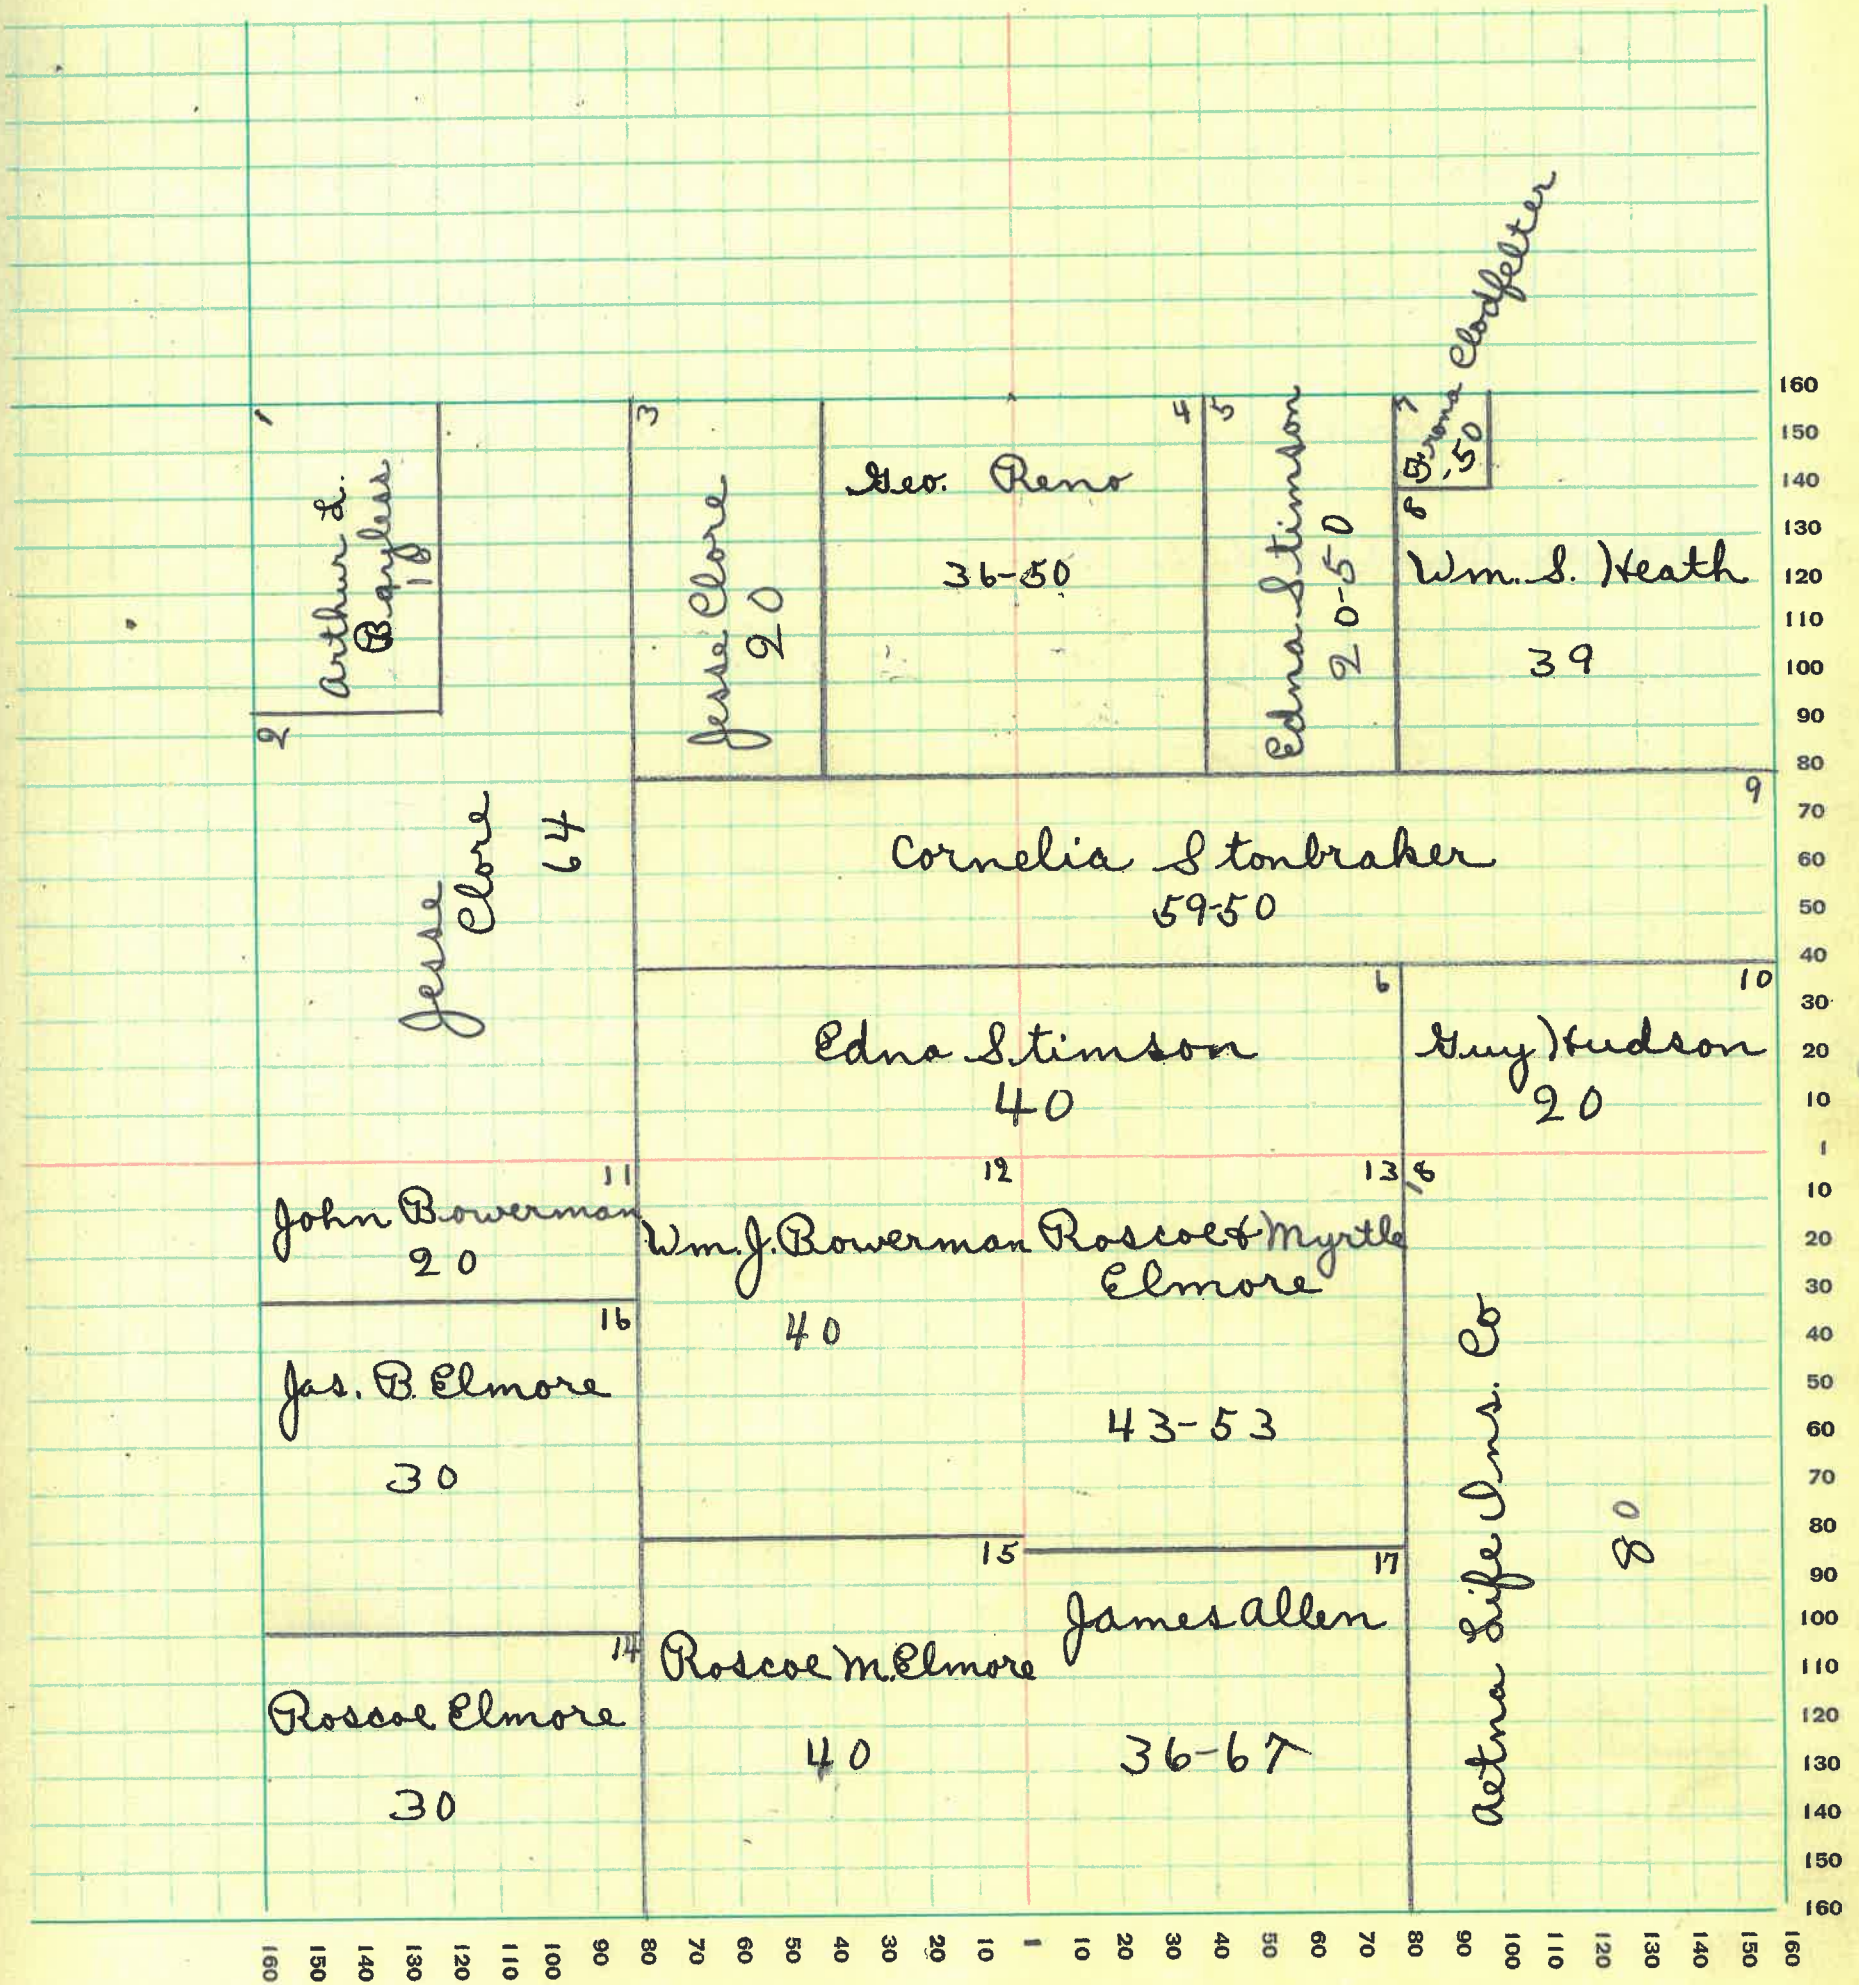 Clodfelter
Erona
.50
7
1
Arthur L.
Bayless
2
3
Jesse Clore
20
4
Geo. Reno
36-50
5
Edna Stimson
20-50
8
Wm. S. Heath
39
Jesse
Clore
64
9
Cornelia Stonbraker
59-50
6
Edna Stimson
40
10
Guy Hudson
20
11
John Bowerman
20
12
Wm. J. Bowerman
40
13
Roscoe & Myrtle
Elmore
43-53
18
Aetna Life Ins. Co
80
16
Jas. B. Elmore
30
14
Roscoe Elmore
30
15
Roscoe M. Elmore
40
17
James Allen
36-67
160
150
140
130
120
110
100
90
80
70
60
50
40
30
20
10
1
10
20
30
40
50
60
70
80
90
100
110
120
130
140
150
160
160 150 140 130 120 110 100 90 80 70 60 50 40 30 20 10 1 10 20 30 40 50 60 70 80 90 100 110 120 130 140 150 160